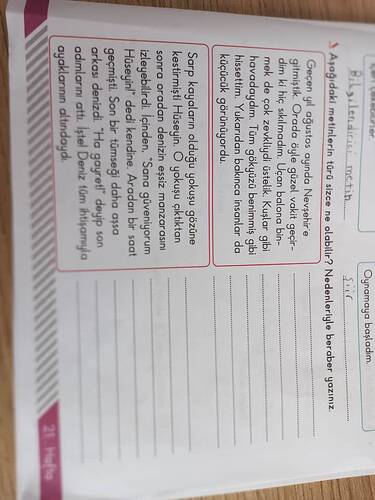 içeri çekebilirler.
Bilgilendirici metin
Oynamaya başladım.
Şiir
3 Aşağıdaki metinlerin türü sizce ne olabilir? Nedenleriyle beraber yazınız.
Geçen yıl ağustos ayında Nevşehir'e
gitmiştik. Orada öyle güzel vakit geçir-
dim ki hiç sıkılmadım. Uçan balona bin-
mek de çok zevkliydi üstelik. Kuşlar gibi
havadaydım. Tüm gökyüzü benimmiş gibi
hissettim. Yukarıdan bakınca insanlar da
küçücük görünüyordu.
Sarp kayaların olduğu yokuşu gözüne
kestirmişti Hüseyin. O yokuşu çıktıktan
sonra oradan denizin eşsiz manzarasını
izleyebilirdi. İçinden, "Sana güveniyorum
Hüseyin!" dedi kendine. Aradan bir saat
geçmişti. Son bir tümseği daha aşsa
arkası denizdi. "Ha gayret!" deyip son
adımlarını attı. İşte! Deniz tüm ihtişamıyla
ayaklarının altındaydı.
21. Hafta